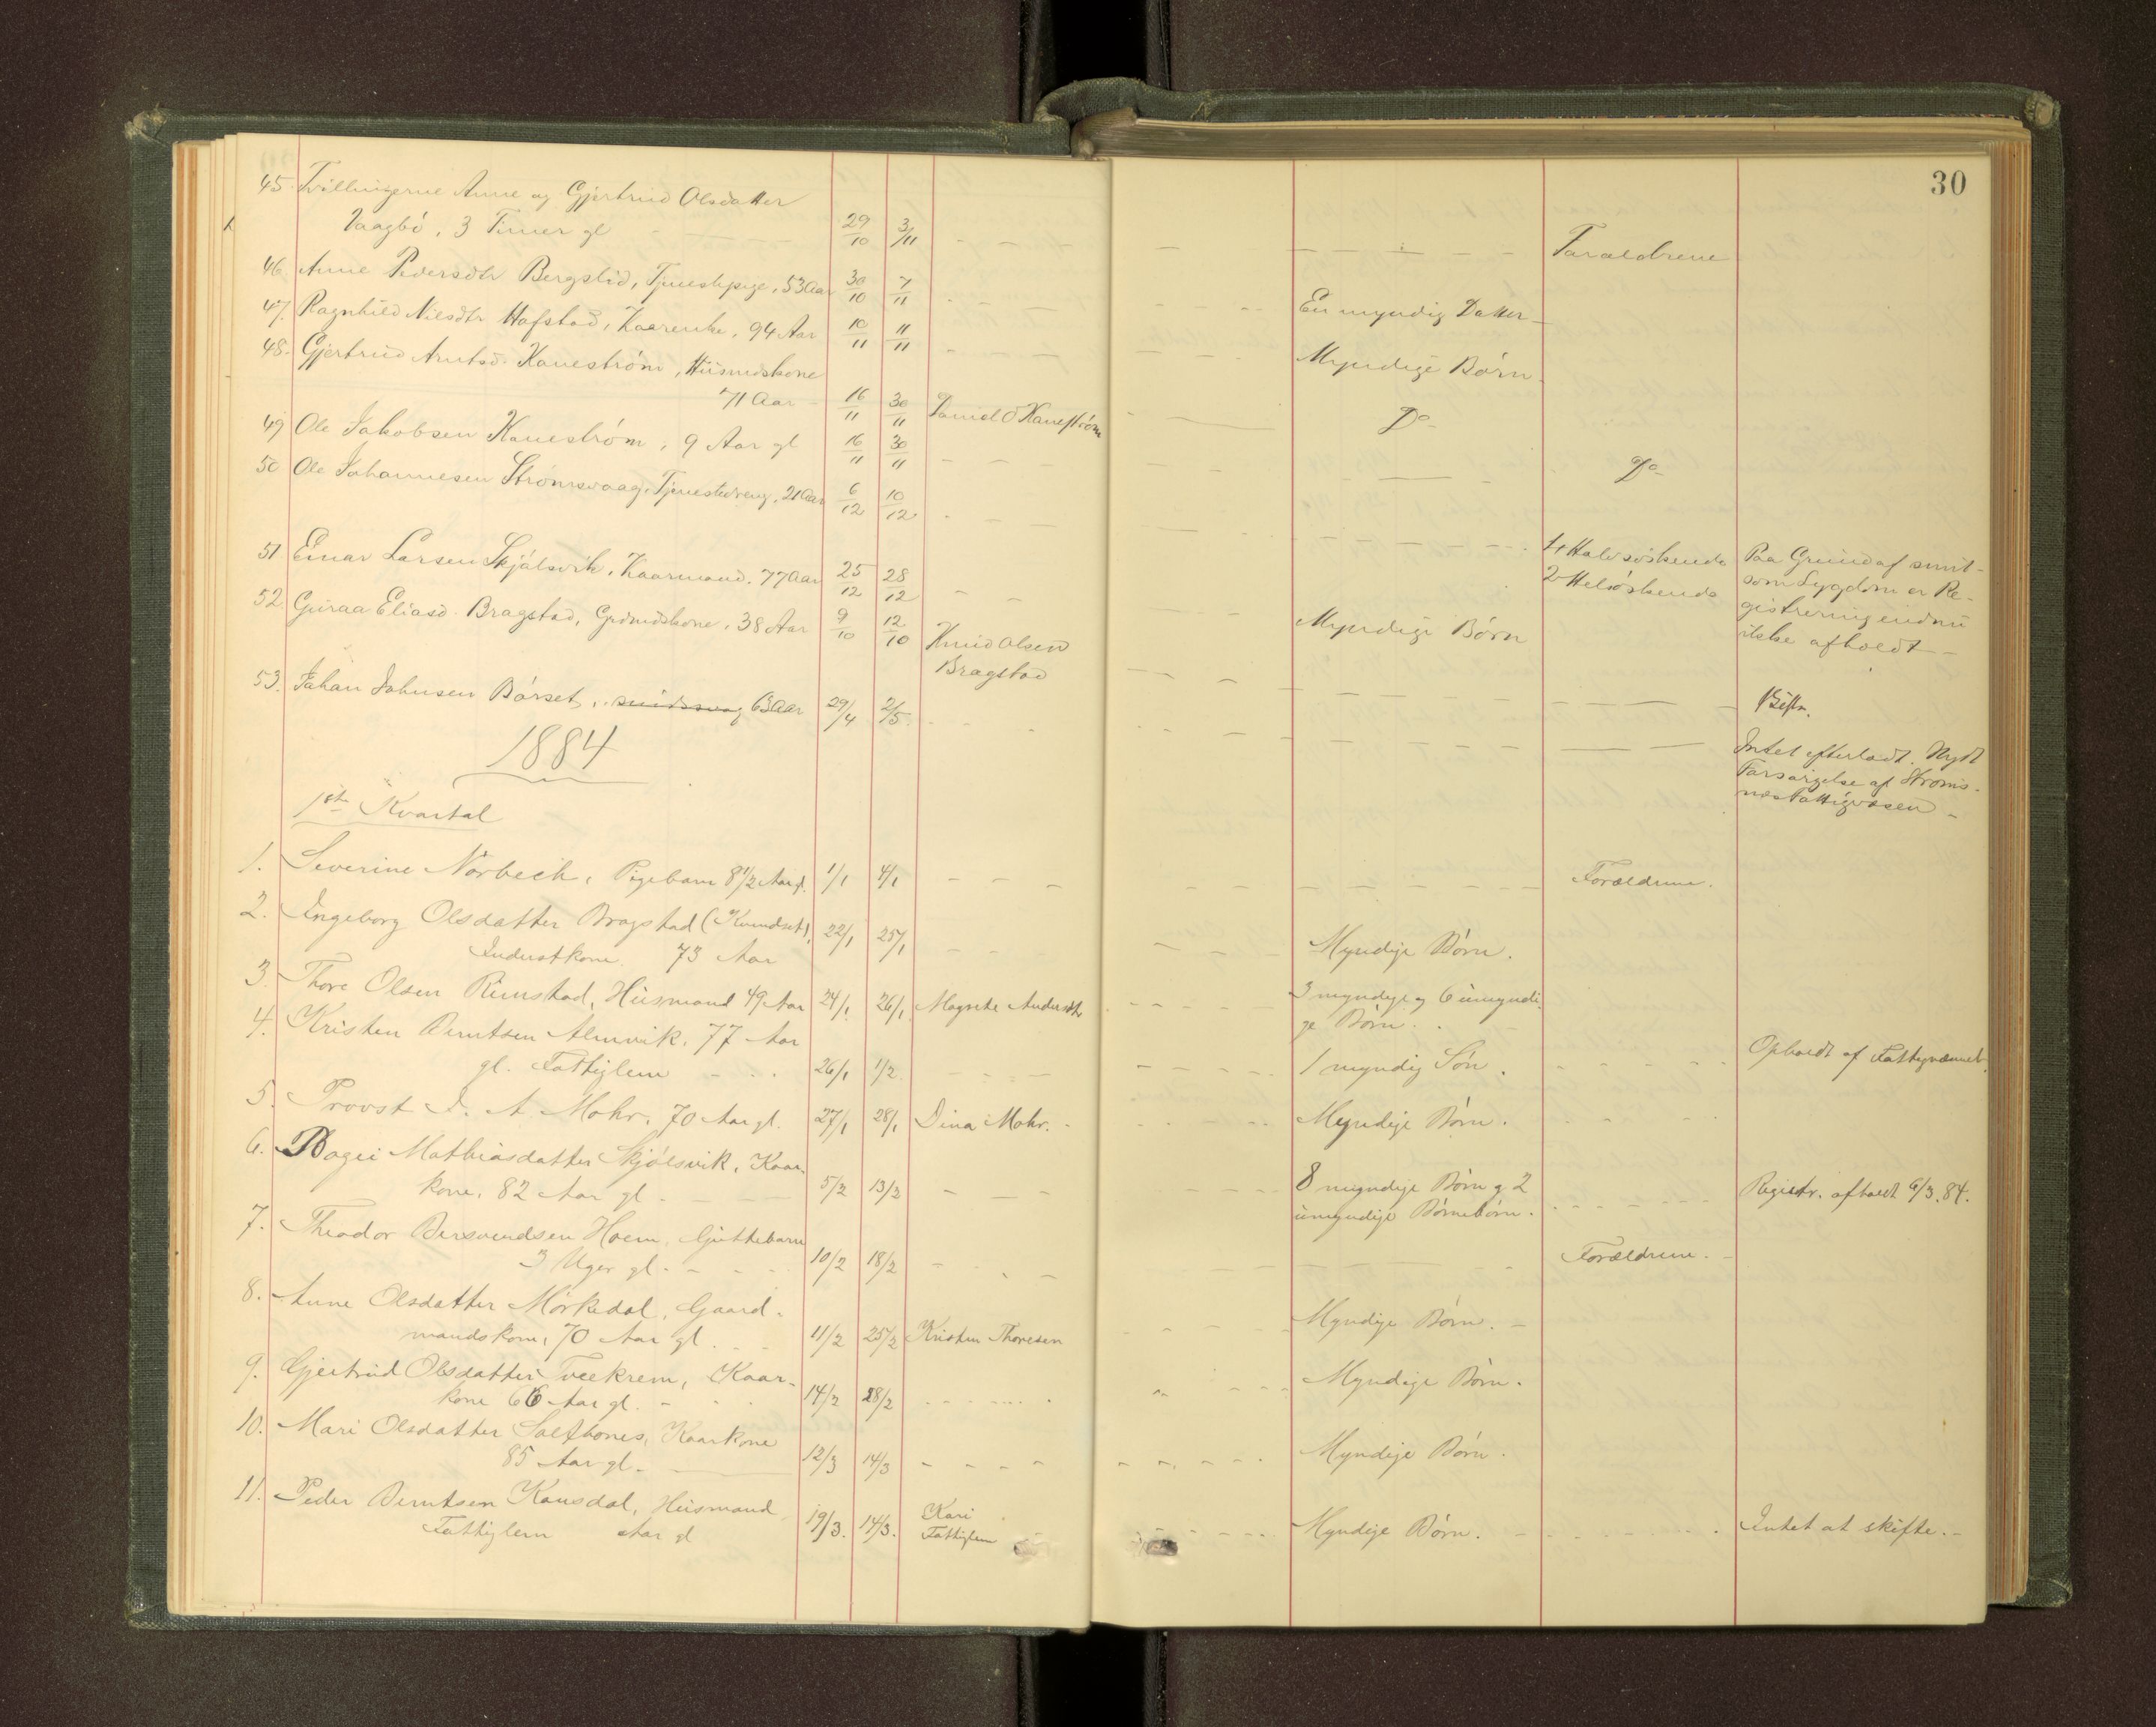 30
45. Tvillingerne Anne og Gjertrud Olsdatter
Vaagbö, 3 Timer gl 29/10 3/11 Foraeldrene
46. Anne Pedersdtr Bergslid, Tjenestepige, 53 Aar 30/10 7/11 En myndig Datter
47. Ragnhild Nilsdtr Hafstad, Kaarenke, 94 Aar 10/11 11/11 Myndige Börn
48. Gjertrud Arntsd. Kaneström, Huusmdskone
71 Aar 16/11 30/11 Daniel O Kaneström Do
49 Ole Jakobsen Kaneström, 9 Aar gl 16/11 30/11 Do
50 Ole Johannesen Strömsvaag, Tjenestedreng, 21 Aar 6/12 10/12 4 Halvsöskende
2 Helsöskende
Paa Grund af smit-
som Sygdom er Re-
gistrering endnu
ikke afholdt
51 Einar Larsen Skjölsvik, Kaarmand, 77 Aar 25/12 28/12 Myndige Börn
52. Guraa Eliasd. Bragstad, Grdmdskone, 38 Aar 9/10 12/10 Knud Olsen
Bragstad
53. Johan Johnsen Börset, 63 Aar 29/4 2/5 Intet efterladt. Nydt
Forsörgelse af Ströms-
næs Fattigvæsen
1884
1ste Kvartal
1. Severine Norbech, Pigebarn 8 1/2 Aar gl. 1/1 4/1 Forældrene.
2. Ingeborg Olsdatter Bragstad (Kvendset),
Inderstkone. 73 Aar 22/1 25/1 Myndige Börn.
3. Thore Olsen Rimstad, Huusmand 49 Aar 24/1 26/1 Magrete Andersdtr 3 myndige og 6 umyndi-
ge Börn.
4. Kristen Berntsen Almvik, 77 Aar
gl. Fattiglem 26/1 1/2 1 myndig Sön. Opholdt af Fattigvæsenet.
5. Provst J. A. Mohr, 70 Aar gl. 27/1 28/1 Dina Mohr. Myndige Börn.
6. Mathiasdatter Skjölsvik, Kaar-
kone, 82 Aar gl. 5/2 13/2 8 myndige Börn og 2
umyndige Börnebörn. Registr. afholdt 6/3.84.
7. Theodor Bersvendsen Hoem, Guttebarn
3 Uger gl. 10/2 18/2 Forældrene.
8. Anne Olsdatter Mörkedal, Gaard-
mandskone, 70 Aar gl. 11/2 25/2 Kristen Thoresen Myndige Börn.
9. Gjertrud Olsdatter Tveekrem, Kaar-
kone 66 Aar gl. 14/2 28/2 Myndige Börn.
10. Mari Olsdatter Saltbones, Kaarkone
85 Aar gl. 12/3 14/3 Myndige Börn.
11. Peder Berntsen Kansdal, Huusmand
Fattiglem Aar gl 19/3. 14/3. Kari
Fattiglem Myndige Börn. Intet at skifte.